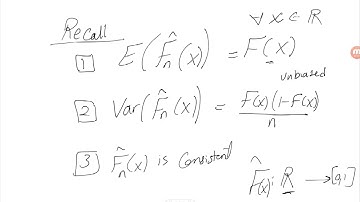 Recall
∀ x ∈ ℝ
1 E(F̂ₙ(x)) = F(x)
unbiased
2 Var(F̂ₙ(x)) = F(x)(1-F(x)) / n
3 F̂ₙ(x) is Consistent
F̂(x): ℝ → [0,1]